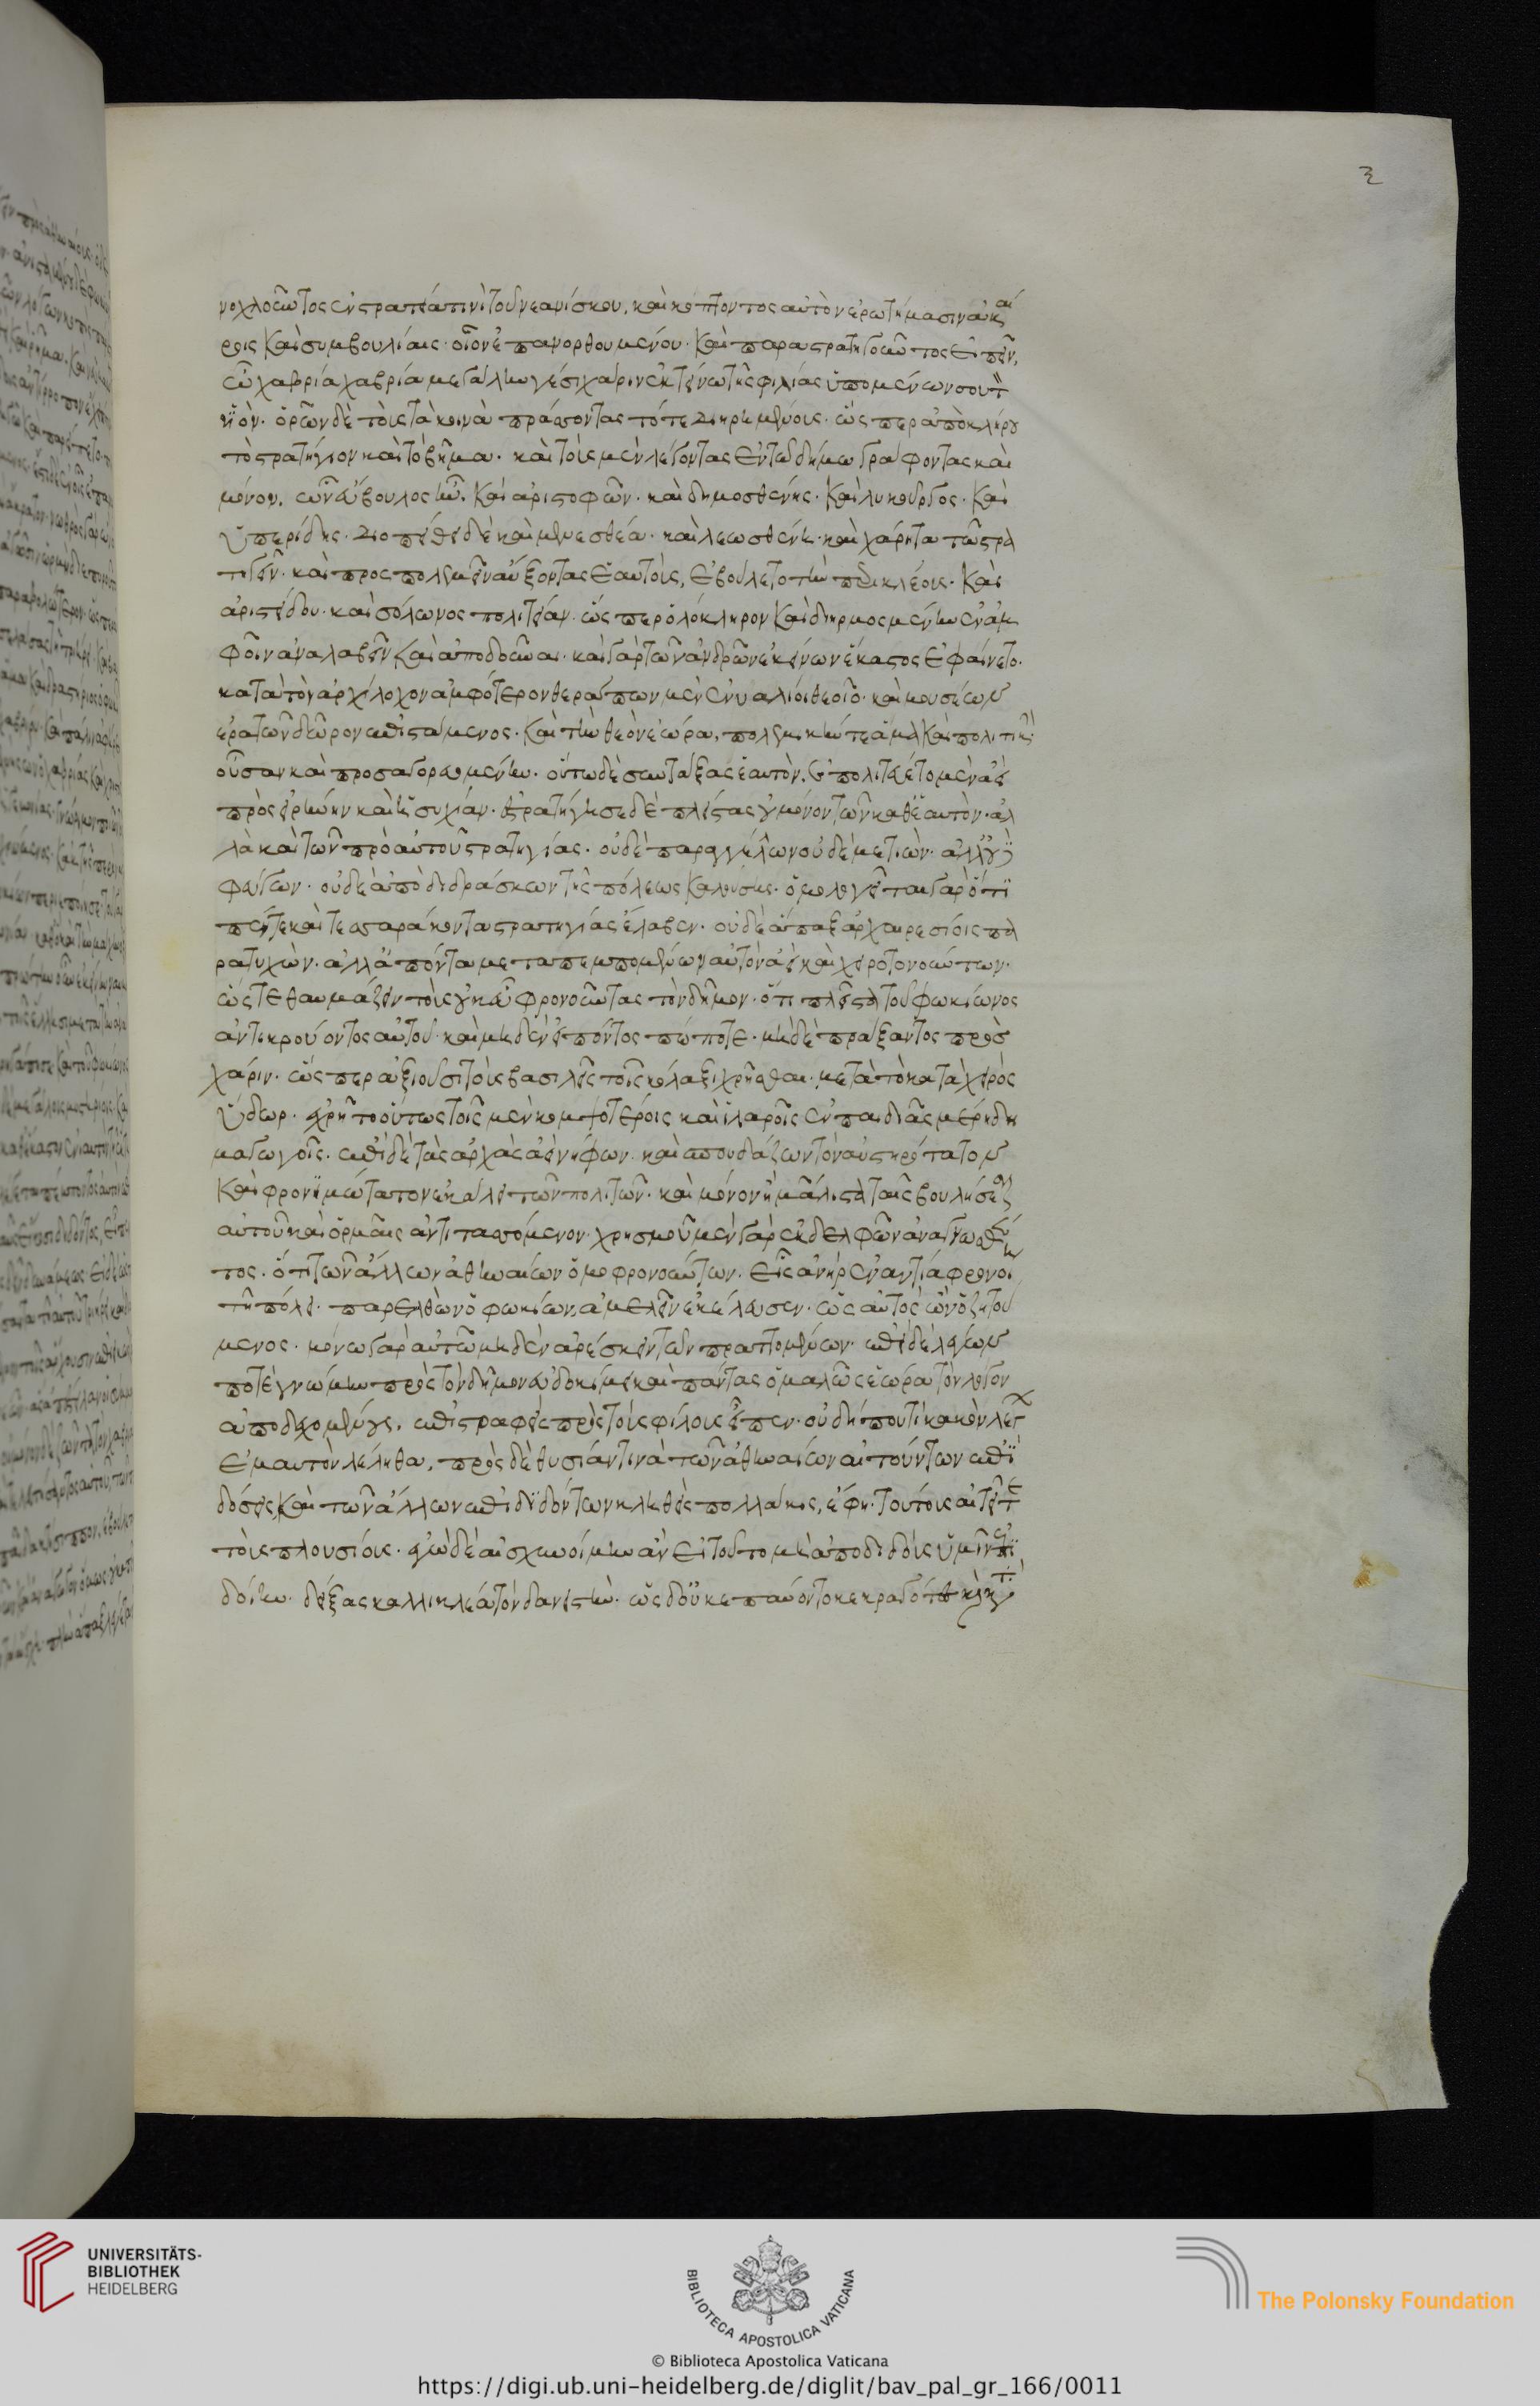 νοχλοῦντος ἐν στρατεία τινὶ τοῦ νεανίσκου, καὶ κόπτοντος αὐτὸν ἐρωτήμασιν ἀκαί
ροις καὶ συμβουλίαις· οἷον ἐπανορθουμένου· καὶ παραστρατηγοῦντος εἰπεῖν,
ὦ χαβρία χαβρία μεγάλην γέ σοι χάριν ἐκτείνω τῆς φιλίας ὑπομένων σου τὸν
ϋἱόν· ὁρῶν δὲ τοὺς τὰ κοινὰ πράσσοντας τότε διηρημένους· ὥσπερ ἀπὸ κλήρου
τὸ στρατήγιον καὶ τὸ βῆμα· καὶ τοὺς μὲν λέγοντας ἐν τῶ δήμω γράφοντας καὶ
μόνον, ὧν εὔβουλος ἦν, καὶ ἀριστοφῶν· καὶ δημοσθένης· καὶ λυκοῦργος· καὶ
ὑπερίδης· διοπείθει δὲ καὶ μενεσθέα· καὶ λεωσθένην· καὶ χάρητα τῶ στρα
τηγεῖν· καὶ προς πολεμεῖν αὔξοντας ἑαυτοὺς, ἐβούλετο τὴν περικλέους· καὶ
ἀριστείδου· καὶ σόλωνος πολιτείαν· ὥσπερ ὁλόκληρον καὶ διηρμοσμένην ἐν ἀμ
φοῖν ἀναλαβεῖν καὶ ἀποδοῦναι· καὶ γὰρ τῶν ἀνδρῶν ἐκείνων ἕκαστος ἐφαίνετο·
κατὰ τὸν ἀρχίλοχον ἀμφότερον θεράπων μὲν ἐνυαλίοιο θεοῖο· καὶ μουσέων
ἐρατῶν δῶρον ἐπιστάμενος· καὶ τὴν θεὸν ἑώρα, πολεμικήν τε ἅμα καὶ πολιτικὴν
οὖσαν καὶ προσαγορευομένην· οὕτω δὲ συντάξας ἑαυτὸν, ἐπολιτεύετο μὲν ἀεὶ
πρὸς εἰρήνην καὶ ἡσυχίαν· ἐστρατήγησε δὲ πλείστας οὐ μόνον τῶν καθ' ἑαυτὸν· ἀλ
λὰ καὶ τῶν πρὸ αὐτοῦ στρατηγίας· οὐδὲ παραγγέλλων οὐδὲ μετιὼν· ἀλλ' οὐ
φεύγων· οὐδὲ ἀποδιδράσκων τῆς πόλεως καλούσης· ὁμολογεῖται γὰρ ὅτι
πέντε καὶ τεσσαράκοντα στρατηγίας ἔλαβεν· οὐδὲ ἅπαξ ἀρχαιρεσίοις πα
ρατυχὼν· ἀλλ' ἀπόντα μεταπεμπομένων αὐτὸν ἀεὶ καὶ χειροτονούντων·
ὥστε θαυμάζειν τοὺς οὐκ εὖ φρονοῦντας τὸν δῆμον· ὅτι πλεῖστα τοῦ φωκίωνος
ἀντικρούοντος αὐτοῦ· καὶ μηδὲν εἰπόντος πώποτε· μηδὲ πράξαντος πρὸς
χάριν· ὥσπερ ἀξιοῦσι τοὺς βασιλεῖς τοῖς κόλαξι χρῆσθαι· μετὰ τὸ κατὰ χειρὸς
ὕδωρ· ἐχρῆτο οὕτως τοῖς μὲν κομψοτέροις καὶ ἱλαροῖς ἐν παιδιᾶς μέρει δη
μαγωγοῖς· ἐπὶ δὲ τὰς ἀρχὰς ἀεὶ νήφων· καὶ σπουδάζων τὸν αὐστηρότατον
καὶ φρονιμώτατον ἐκάλει τῶν πολιτῶν· καὶ μόνον ἢ μάλιστα ταῖς βουλήσεσιν
αὐτοῦ καὶ ὁρμαῖς ἀντιτασσόμενον· χρησμοῦ μὲν γὰρ ἐκ δελφῶν ἀναγνωσθέν
τος· ὅτι τῶν ἄλλων ἀθηναίων ὁμοφρονούντων· εἷς ἀνὴρ ἐναντία φρονοῖ
τῆ πόλει· παρελθὼν ὁ φωκίων, ἀμελεῖν ἐκέλευσεν· ὡς αὐτὸς ὢν ὁ ζητού
μενος· μόνω γὰρ αὐτῶ μηδὲν ἀρέσκειν τῶν πραττομένων· ἐπεὶ δὲ λέγων
ποτὲ γνώμην πρὸς τὸν δῆμον εὐδοκίμει καὶ πάντας ὁμαλῶς ἑώρα τὸν λόγον
ἀποδεχομένους, ἐπιστραφεὶς πρὸς τοὺς φίλους εἶπεν· οὐ δήπου τι κακὸν λέγων
ἐμαυτὸν λέληθα, πρὸς δὲ θυσίαν τινὰ τῶν ἀθηναίων αἰτούντων ἐπι
δόσεις καὶ τῶν ἄλλων ἐπιδιδόντων κληθεὶς πολλάκις, ἔφη· τούτους αἰτεῖτε
τοὺς πλουσίους· ἐγὼ δὲ αἰσχυνοίμην ἂν εἰ τούτω μὴ ἀποδιδοὺς ὑμῖν ἐπι
δοίην· δείξας καλλικλέα τὸν δανειστὴν· ὡς δ' οὐκ ἐπαύοντο κεκραγότες καὶ
© Biblioteca Apostolica Vaticana
https://digi.ub.uni-heidelberg.de/diglit/bav_pal_gr_166/0011
UNIVERSITÄTS-
BIBLIOTHEK
HEIDELBERG
BIBLIOTECA APOSTOLICA VATICANA
The Polonsky Foundation